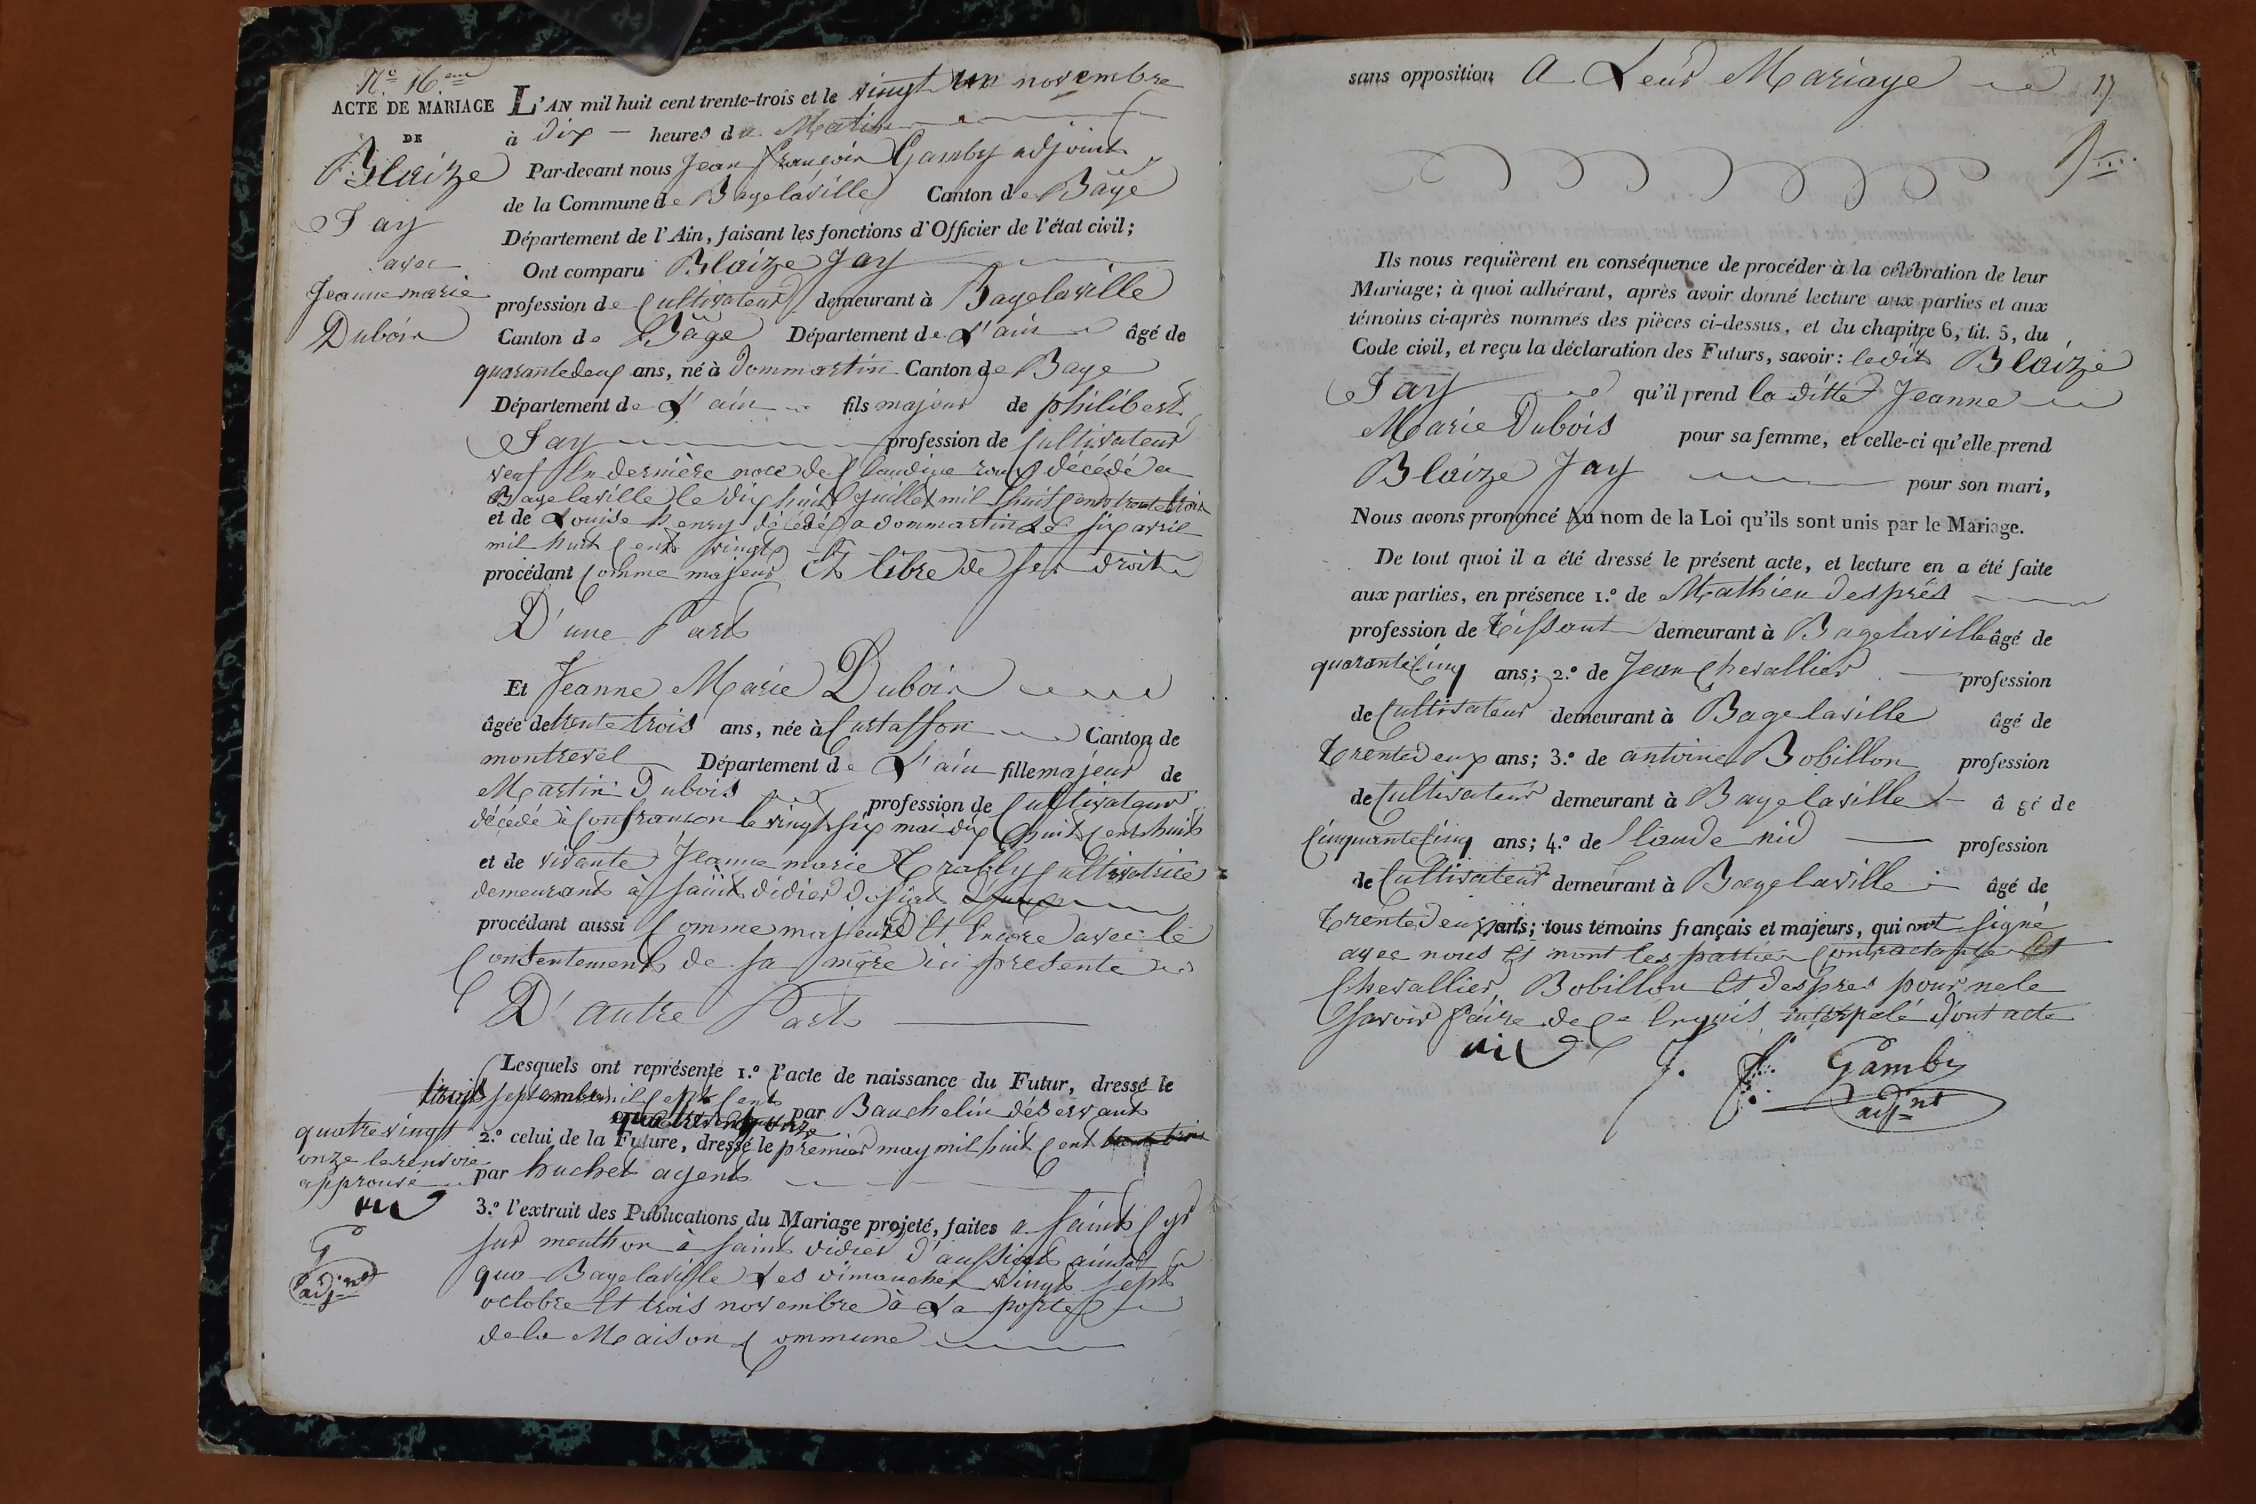 N.° 16.eme
ACTE DE MARIAGE
DE
Blaize
Jay
avec
Jeanne marie
Dubois
L'AN mil huit cent trente-trois et le vingt un novembre
à dix heures du Matin
Par-devant nous Jean françois Gamby adjoint
de la Commune de Bagelaville Canton de Bâgé
Département de l'Ain, faisant les fonctions d'Officier de l'état civil;
Ont comparu Blaize Jay
profession de Cultivateur demeurant à Bagelaville
Canton de Bagé Département de L'ain âgé de
quarantedeux ans, né à Dommartin Canton de Bage
Département de L'ain fils majeur de philibert
Jay profession de Cultivateur
veuf En dernière noce de Claudine roux décédé a
Bagelaville le dix huit Juillet mil huit Cent trente trois
et de Louise henry décédé a dommartin Le six avril
mil huit Cent vingt
procédant Comme majeur Et libre de ses droit
D'une Part
Et Jeanne Marie Dubois
âgée de trente trois ans, née à Curtaffon Canton de
montrevel Département de L'ain fille majeur de
Martin Dubois profession de Cultivateur
décédé à Confranson le vingt six mai dix huit Cent huit
et de vivante Jeanne marie Cultivatrice
demeurant à Saint didier
procédant aussi Comme majeure Et Encore avec le
Consentement de sa mère ici presente
D'autre Part
Lesquels ont représenté 1.° l'acte de naissance du Futur, dressé le
trois septembre mil sept Cent
par Bauchelin déservant
2.° celui de la Future, dressé le premier may mil huit Cent
par huchet agent
quatre vingt
onze le renvoie
approuvé
nid
G
adj.nt
3.° l'extrait des Publications du Mariage projeté, faites a Saint Cyr
sur menthon à Saint didier d'aussiat ainsi
que Bagelaville Les dimanches vingt sept
octobre Et trois novembre à La porte
de la Maison Commune
sans opposition A Leur Mariage
17
Ils nous requièrent en conséquence de procéder à la célébration de leur
Mariage; à quoi adhérant, après avoir donné lecture aux parties et aux
témoins ci-après nommés des pièces ci-dessus, et du chapitre 6, tit. 5, du
Code civil, et reçu la déclaration des Futurs, savoir: ledit Blaize
Jay qu'il prend la ditte Jeanne
Marie Dubois pour sa femme, et celle-ci qu'elle prend
Blaize Jay pour son mari,
Nous avons prononcé Au nom de la Loi qu'ils sont unis par le Mariage.
De tout quoi il a été dressé le présent acte, et lecture en a été faite
aux parties, en présence 1.° de Mathieu després
profession de Tissant demeurant à Bagelaville âgé de
quarantecinq ans; 2.° de Jean Chevallier profession
de Cultivateur demeurant à Bagelaville âgé de
Trentedeux ans; 3.° de antoine Bobillon profession
de Cultivateur demeurant à Bagelaville âgé de
Cinquantecinq ans; 4.° de Claude nid profession
de Cultivateur demeurant à Bagelaville âgé de
Trentedeux ans; tous témoins français et majeurs, qui ont signé
avec nous Et nont les parties Contractante Et
Chevallier Bobillon Et despres pour ne le
Savoir faire de Ce Enquis interpelé dont acte
nid
J. F. Gamby
adj.nt